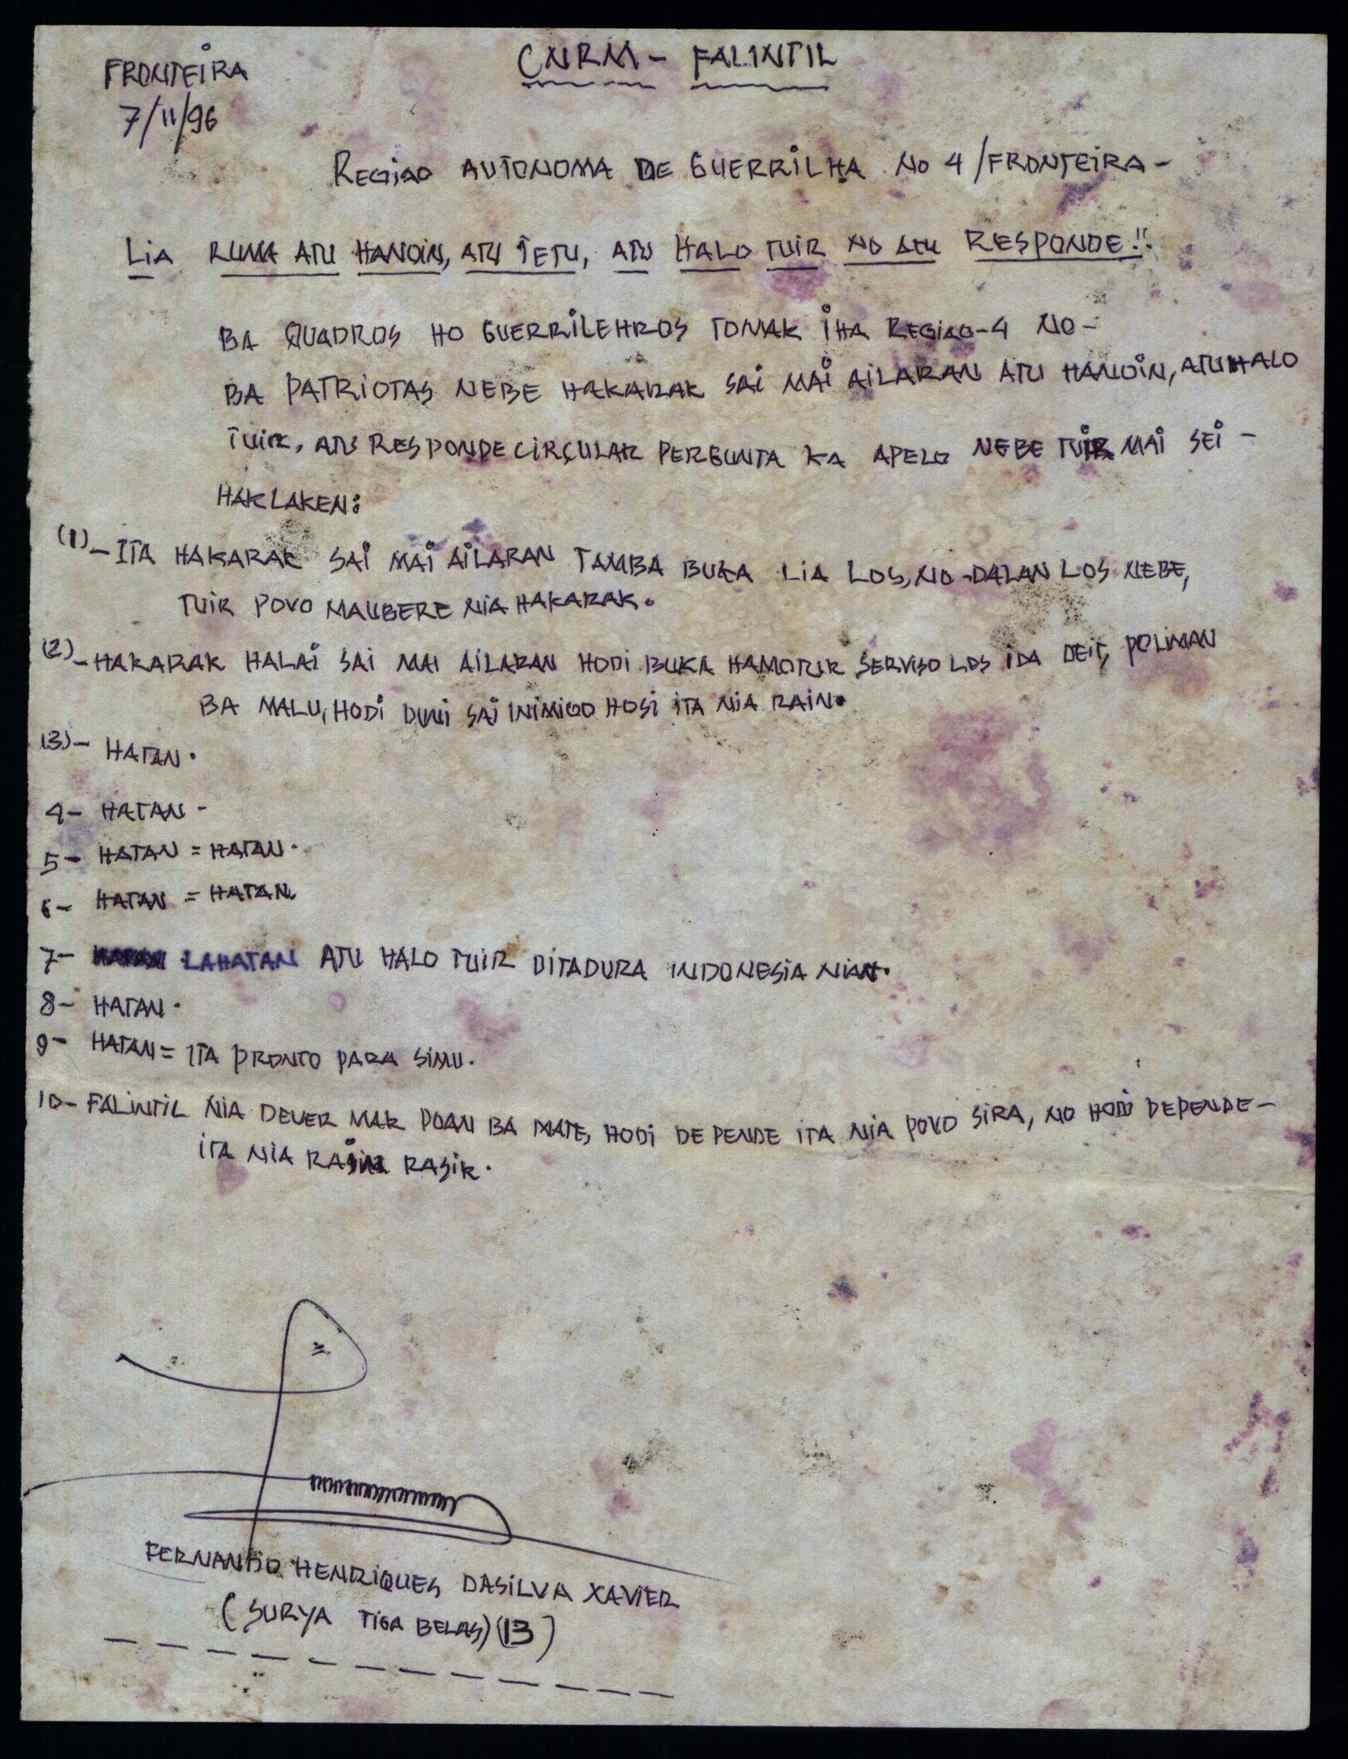 CNRM - FALINTIL
FRONTEIRA
7/11/96
REGIAO AUTONOMA DE GUERRILHA NO 4/FRONTEIRA-
LIA RUMA ATU HANOIN, ATU TETU, ATU HALO TUIR NO ATU RESPONDE!!
BA QUADROS HO GUERRILEHROS TOMAK IHA REGIAO-4 NO-
BA PATRIOTAS NEBE HAKARAK SAI MAI AILARAN ATU HANOIN, ATU HALO
TUIR, ATU RESPONDE CIRÇULAR PERGUNTA KA APELO NEBE TUIR MAI SEI -
HAKLAKEN:
(1)- ITA HAKARAK SAI MAI AILARAN TAMBA BUKA LIA LOS, NO-DALAN LOS NEBE,
TUIR POVO MAUBERE NIA HAKARAK.
(2)- HAKARAK HALAI SAI MAI AILARAN HODI BUKA HAMOTUK SERVISO LOS IDA DEIT, POLIMAN
BA MALU, HODI DUNI SAI INIMIGO HOSI ITA NIA RAIN.
(3)- HATAN.
4- HATAN -
5- HATAN = HATAN.
6- HATAN = HATAN
7- LAHATAN ATU HALO TUIR DITADURA INDONESIA NIAN.
8- HATAN.
9- HATAN = ITA PRONTO PARA SIMU.
10- FALINTIL NIA DEVER MAK DOAN BA MATE, HODI DEPENDE ITA NIA POVO SIRA, NO HODI DEPENDE-
ITA NIA RASIK.
FERNANDO HENRIQUES DASILVA XAVIER
(SURYA TIGA BELAS) (13)